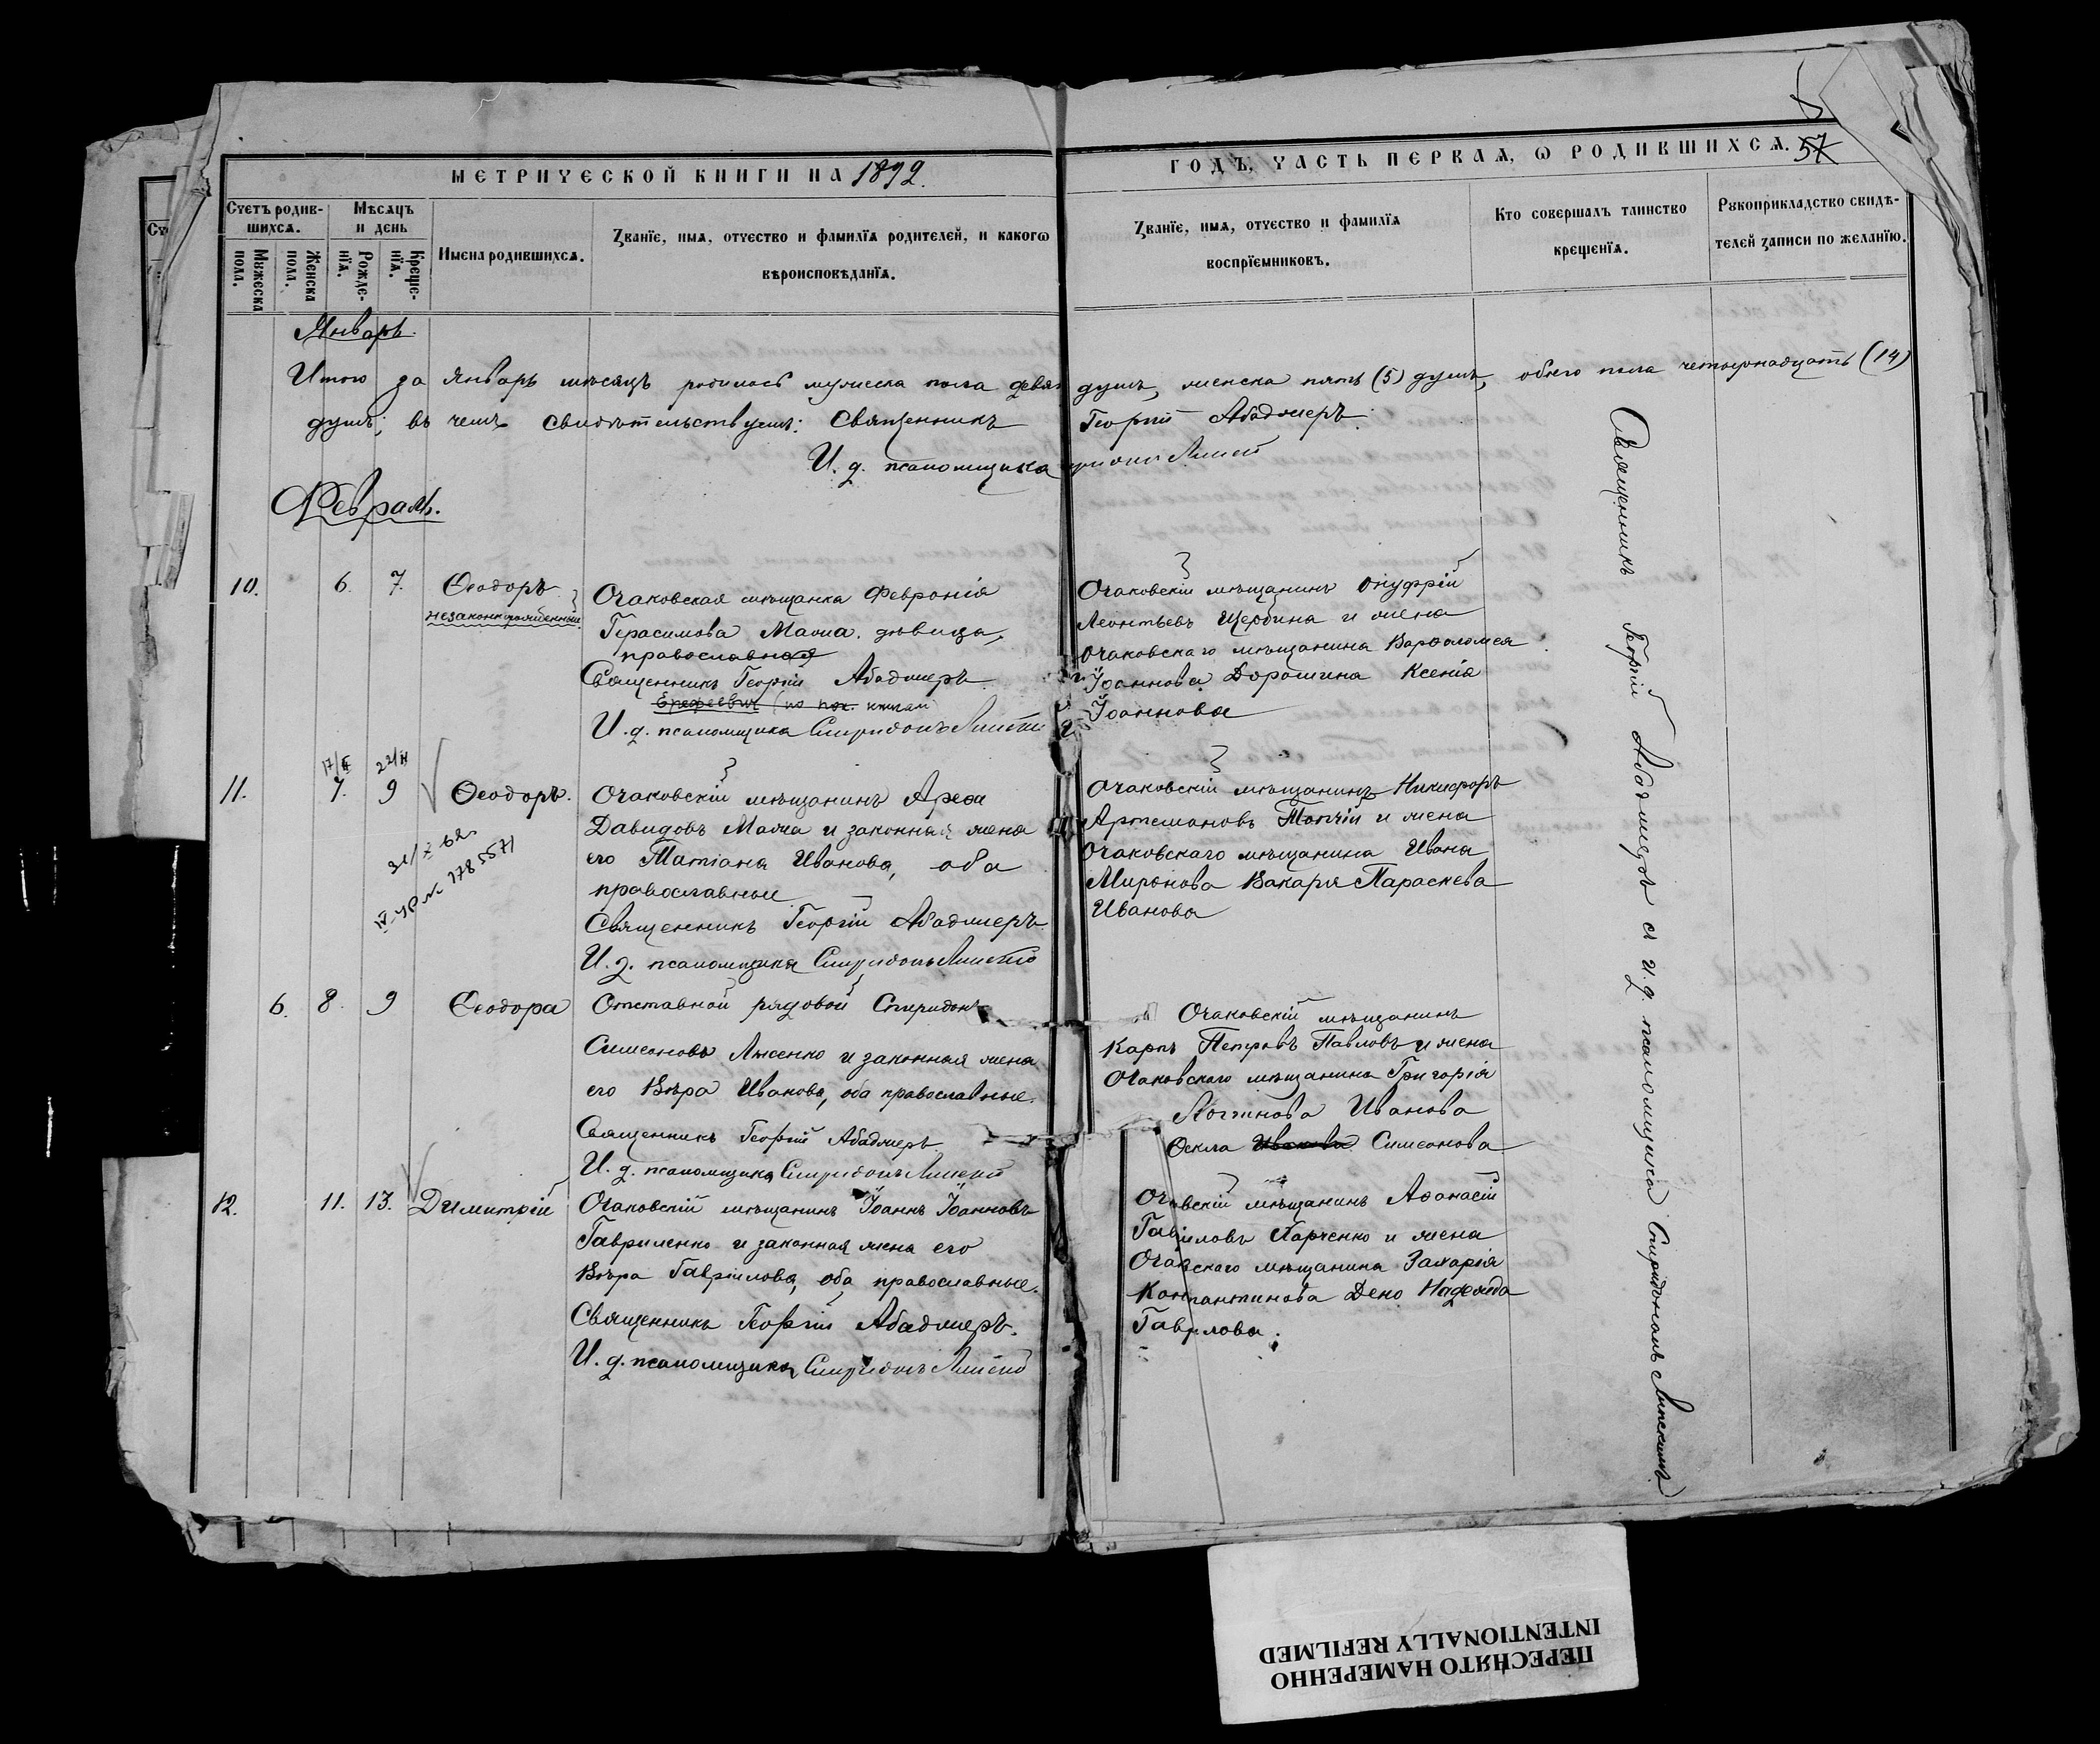 МЕТРИЧЕСКОЙ КНИГИ НА 1892.
ГОДЪ, ЧАСТЬ ПЕРВАЯ, Ѡ РОДИВШИХСЯ. 57
Счетъ родив-
шихся.
Мѣсяцъ
и день
Мужеска
пола.
Женска
пола.
Рожде-
нїя.
Креще-
нїя.
Имена родившихся.
Званїе, имя, отчество и фамилїя родителей, и какогѡ
вѣроисповѣданїя.
Званїе, имя, отчество и фамилїя
воспрїемниковъ.
Кто совершалъ таинство
крещенїя.
Рукоприкладство свидѣ-
телей записи по желанїю.
Январь.
Итого за Январь мѣсяцъ родилось мужеска пола девя душъ, женска пять (5) душъ, обоего пола четырнадцать (14)
душъ; въ чемъ свидѣтельствуемъ: Священникъ Георгій Абаджеръ.
И. д. псаломщика
Февраль.
10. 6. 7. Ѳеодоръ
незаконнорожденный.
Очаковская мѣщанка Февронія
Герасимова Мамка, дѣвица,
православная
Священникъ Георгій Абаджеръ
И. д. псаломщика Спиридонъ
Очаковскій мѣщанинъ Онуфрій
Леонтьевъ Щербина и жена
Очаковскаго мѣщанина Варѳоломея
Іоаннова Дорошина Ксенія
Іоаннова
17/II 22/II
11. 7. 9 Ѳеодоръ.
Очаковскій мѣщанинъ
Давидовъ Мамка и законная жена
его Татіана Иванова, оба
православные
Священникъ Георгій Абаджеръ
И. д. псаломщика Спиридонъ
Очаковскій мѣщанинъ Никифоръ
Артемоновъ Топчій и жена
Очаковскаго мѣщанина Ивана
Миронова Вакаря Параскева
Иванова
6. 8. 9 Ѳеодора
Отставной рядовой Спиридонъ
Симеоновъ Лысенко и законная жена
его Вѣра Иванова, оба православные.
Священникъ Георгій Абаджеръ
И. д. псаломщика Спиридонъ
Очаковскій мѣщанинъ
Карпъ Петровъ Павловъ и жена
Очаковскаго мѣщанина Григорія
Логинова Иванова
Ѳекла Иванова Симеонова
12. 11. 13. Димитрій
Очаковскій мѣщанинъ Іоаннъ Іоанновъ
Гавриленко и законная жена его
Вѣра Гавріилова, оба православные.
Священникъ Георгій Абаджеръ.
И. д. псаломщика Спиридонъ
мѣщанинъ Аѳанасій
Харченко и жена
мѣщанина Захарія
Дено Надежда
Священникъ Георгій Абаджеръ съ и. д. псаломщика Спиридономъ
ПЕРЕСНЯТО НАМЕРЕННО
INTENTIONALLY REFILMED